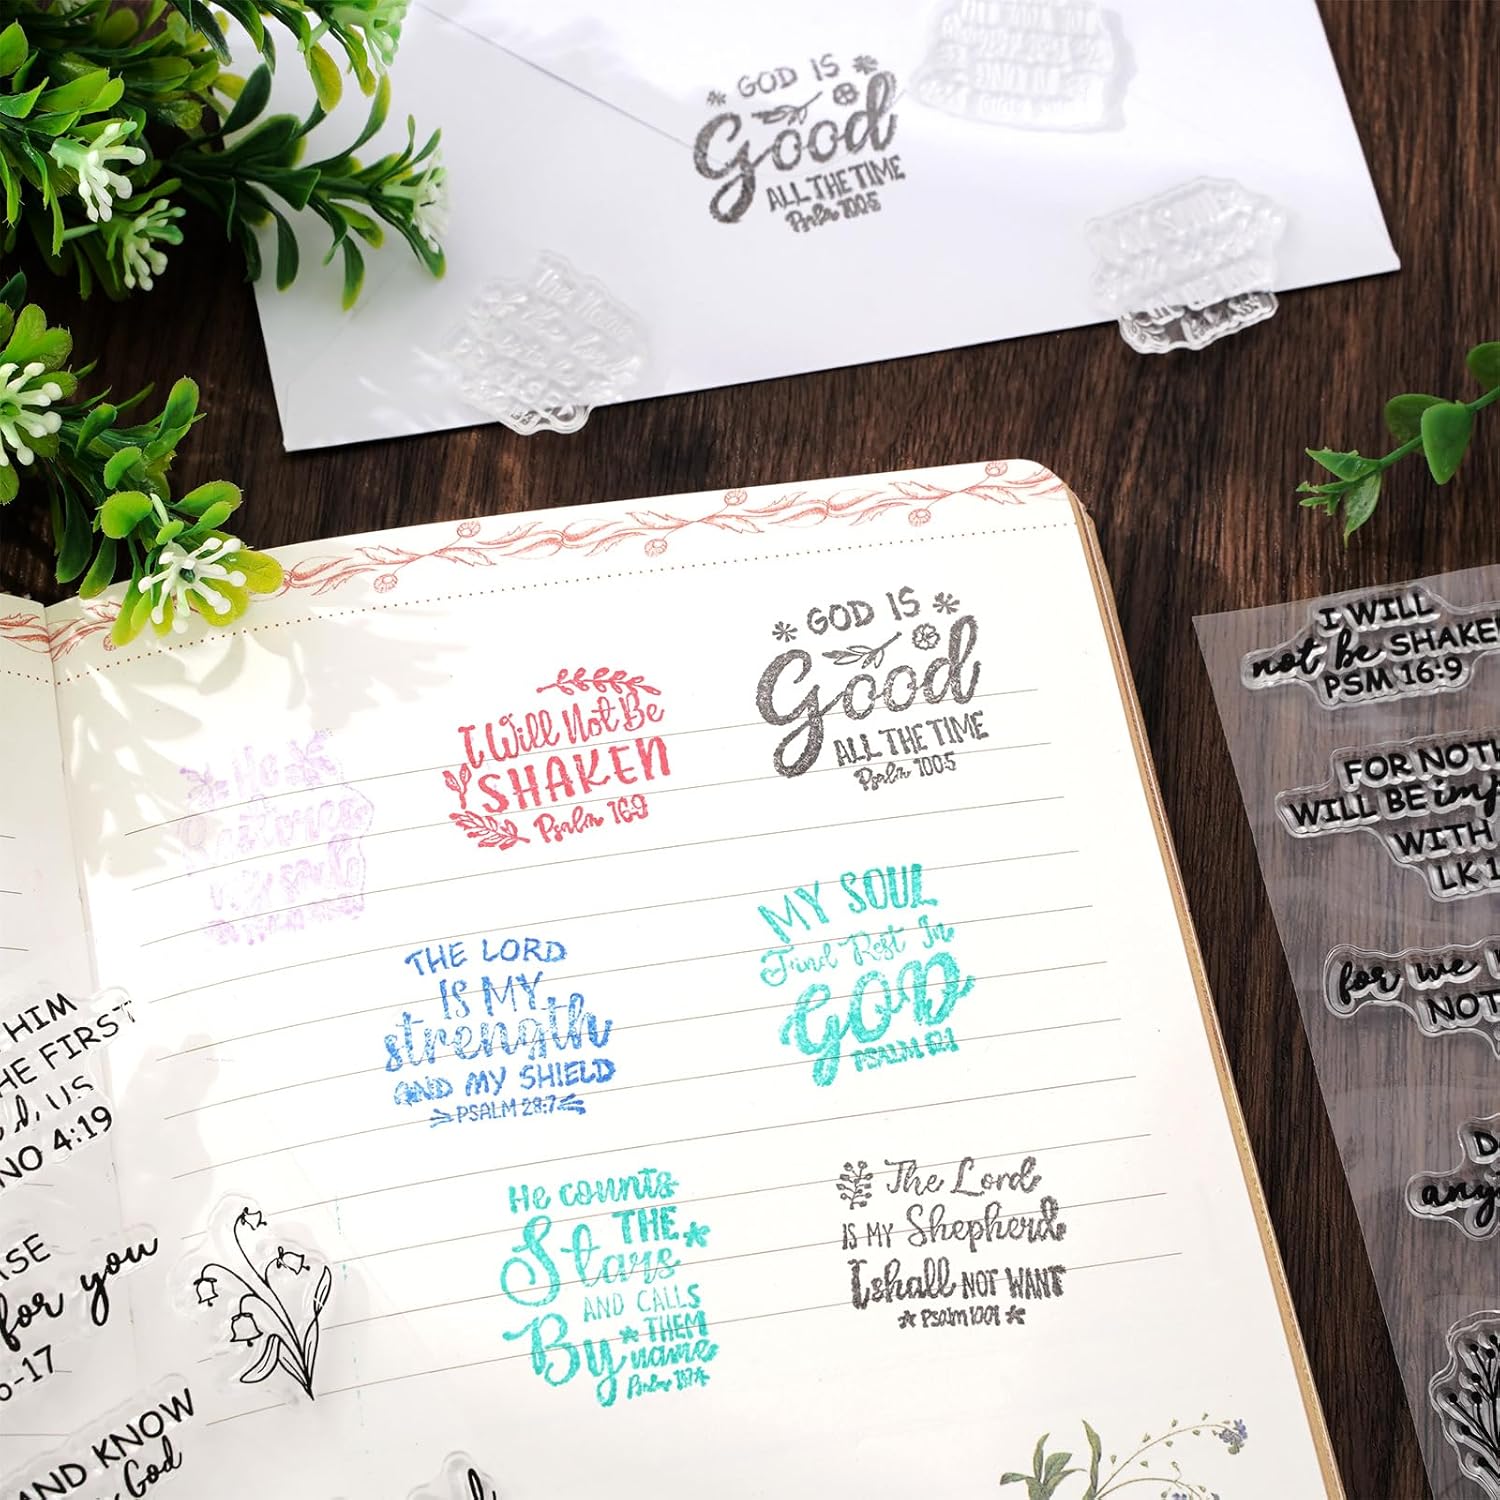 GOD IS
Good
ALL THE TIME
Psalm 100:5
GOD IS
Good
ALL THE TIME
Psalm 100:5
I Will Not Be
SHAKEN
Psalm 16:9
He
Restores
my soul
THE LORD
IS MY
strength
AND MY SHIELD
PSALM 28:7
MY SOUL
Find Rest In
GOD
PSALM 62:1
He counts
THE
Stars
AND CALLS
THEM
By name
Psalm
The Lord
IS MY Shepherd
I shall NOT WANT
PSALM
I WILL
not be SHAKEN
PSM 16:9
FOR NOTH
WILL BE imp
WITH
LK 1
for we
NOT
D
any
HIM
HE FIRST
d, US
NO 4:19
ISE
for you
-17
AND KNOW
God